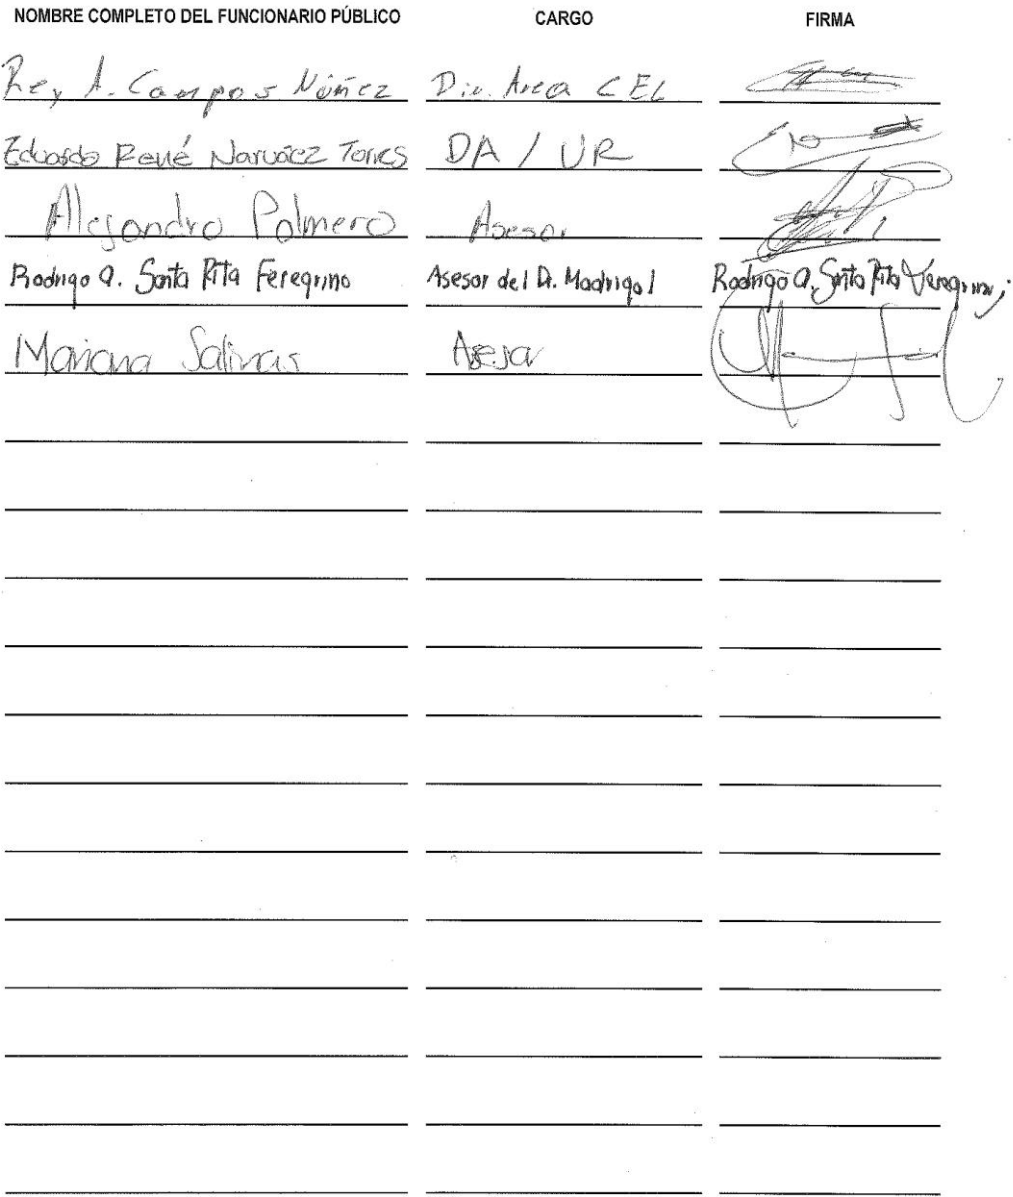 NOMBRE COMPLETO DEL FUNCIONARIO PÚBLICO CARGO FIRMA
Rey A. Campos Núñez Dir. Area CEL
Eduardo René Narváez Torres DA / UR
Alejandro Palmero Asesor
Rodrigo A. Santa Rita Feregrino Asesor del D. Madrigal Rodrigo A. Santa Rita Feregrino
Mariana Salinas Asesor